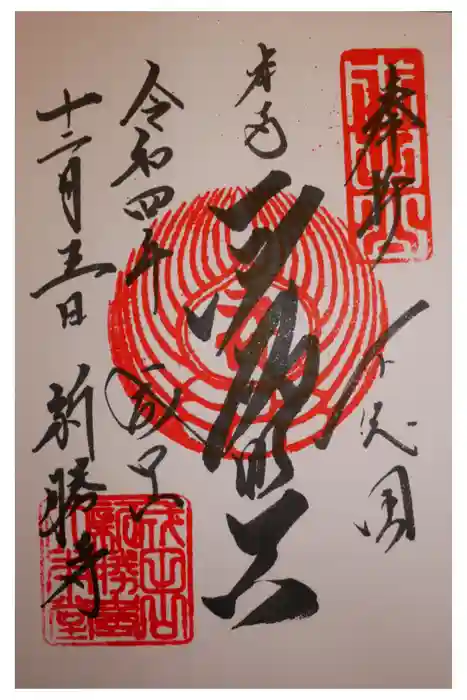 奉拝
下総国
本尊
不動明王
令和四年 成田山
十二月五日 新勝寺
成田山
新勝寺